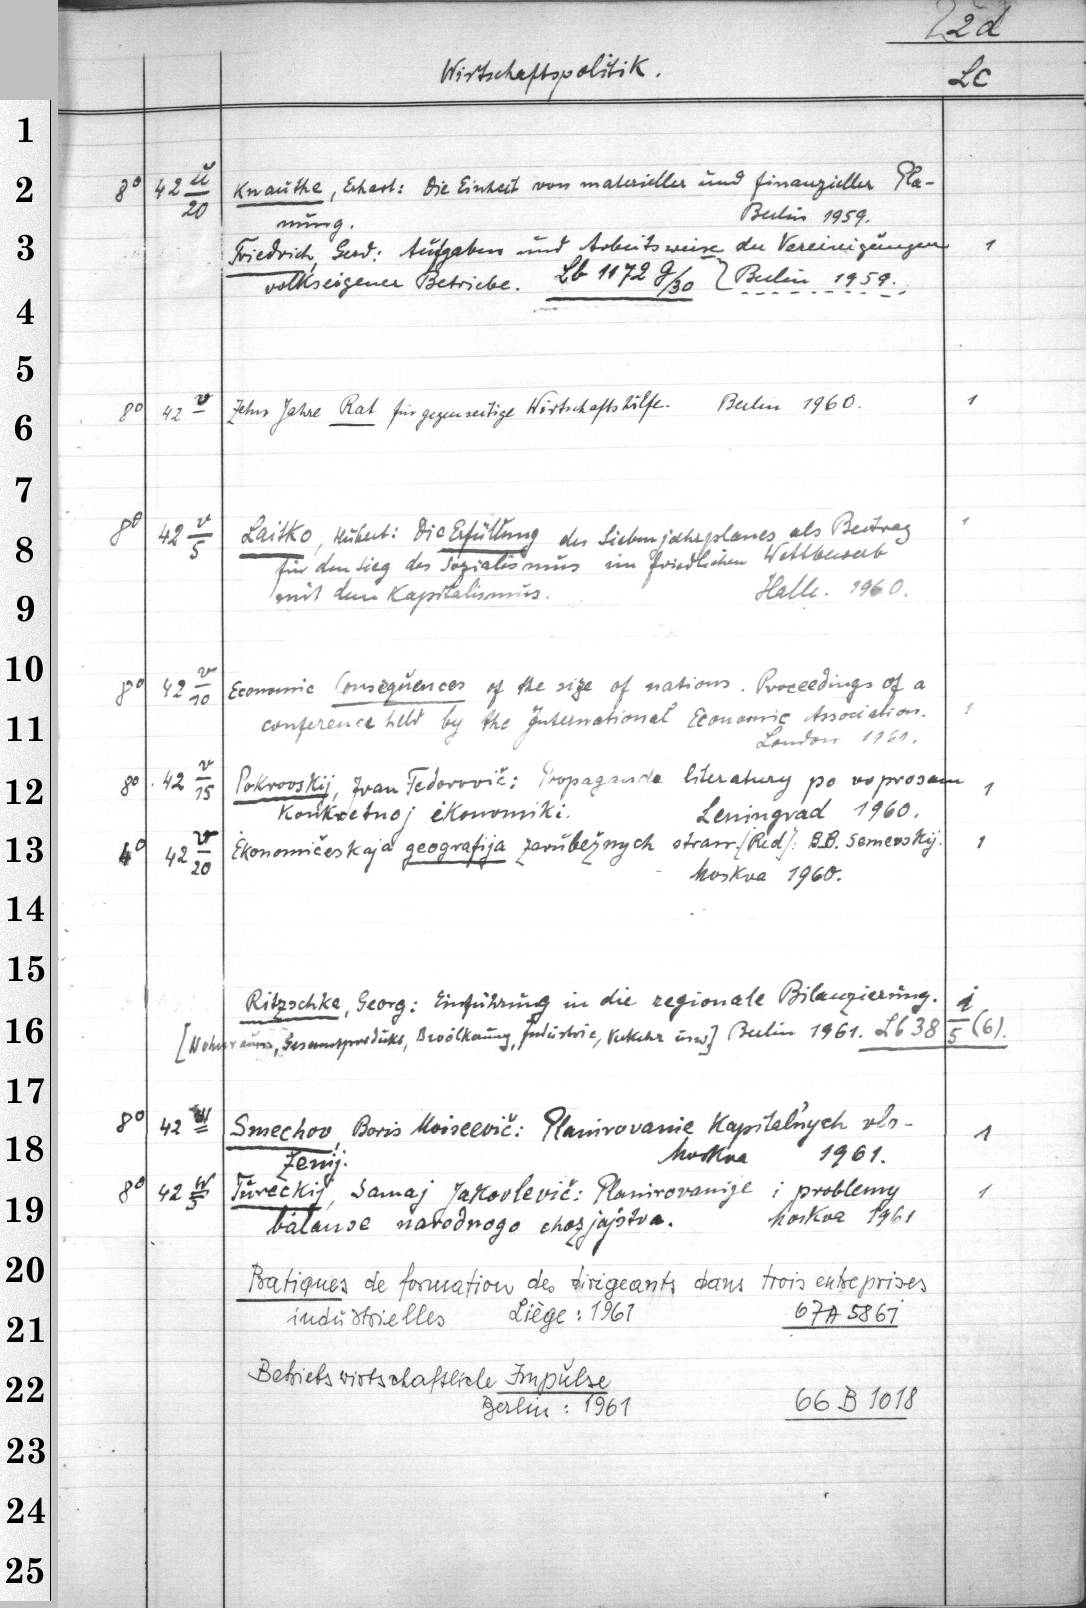 22d
Wirtschaftspolitik. Lc
1
2 8° 42 ü/20 Knauthe, Erhart: Die Einheit von materieller und finanzieller Pla-
nung. Berlin 1959.
3 Friedrich, Gerd: Aufgaben und Arbeitsweise der Vereinigungen 1
volkseigener Betriebe. Lb 1172 g/30 Berlin 1959.
4
5
6 8° 42 v Zehn Jahre Rat für gegenseitige Wirtschaftshilfe. Berlin 1960. 1
7
8 8° 42 v/5 Laitko, Hubert: Die Erfüllung des Siebenjahrplanes als Beitrag 1
für den Sieg des Sozialismus im friedlichen Wettbewerb
9 mit dem Kapitalismus. Halle. 1960.
10 8° 42 v/10 Economic Consequences of the size of nations. Proceedings of a
11 conference held by the International Economic Association. 1
London 1961.
12 8° 42 v/15 Pokrovskij, Ivan Fedorovič: Propaganda literatury po voprosam 1
konkretnoj ėkonomiki. Leningrad 1960.
13 4° 42 v/20 Ėkonomičeskaja geografija zarubežnych stran. [Red]: B.B. Semevskij. 1
Moskva 1960.
14
15
Ritzschke, Georg: Einführung in die regionale Bilanzierung. i
16 [Wohnraum, Gesamtprodukt, Bevölkerung, Industrie, Verkehr usw] Berlin 1961. Lb 38 /5 (6).
17
8° 42 w Smechov, Boris Moiseevič: Planirovanie kapital'nych vlo- 1
18 ženij. Moskva 1961.
19 8° 42 w/5 Tureckij, Samaj Jakovlevič: Planirovanije i problemy 1
balanse narodnogo chozjajstva. Moskva 1961
20 Pratiques de formation des dirigeants dans trois entreprises
21 industrielles Liège: 1961 67A 5861
22 Betriebswirtschaftliche Impulse
Berlin: 1961 66 B 1018
23
24
25